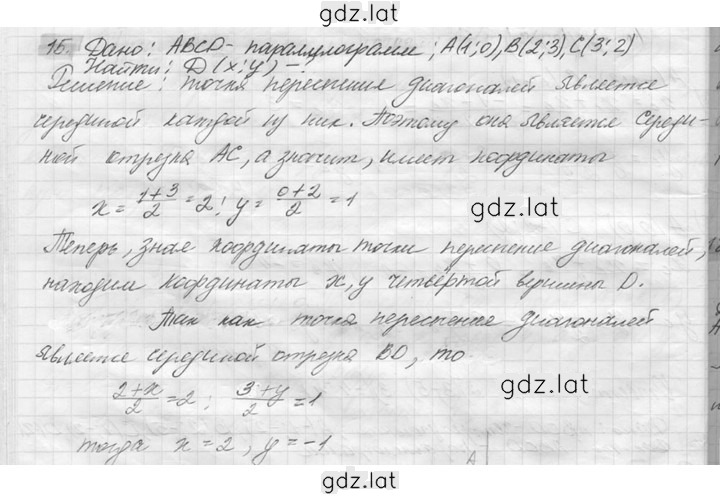 gdz.lat
15. Дано: ABCD - параллелограмм; A(1;0), B(2;3), C(3;2)
Найти: D(x;y) - ?
Решение: точка пересечения диагоналей является
серединой каждой из них. Поэтому она является середи-
ной отрезка AC, а значит, имеет координаты
x = (1+3)/2 = 2; y = (0+2)/2 = 1
gdz.lat
Теперь, зная координаты точки пересечение диагоналей,
находим координаты x, y четвёртой вершины D.
Так как точка пересечение диагоналей
является серединой отрезка BD, то
(2+x)/2 = 2; (3+y)/2 = 1
gdz.lat
тогда x = 2, y = -1
gdz.lat